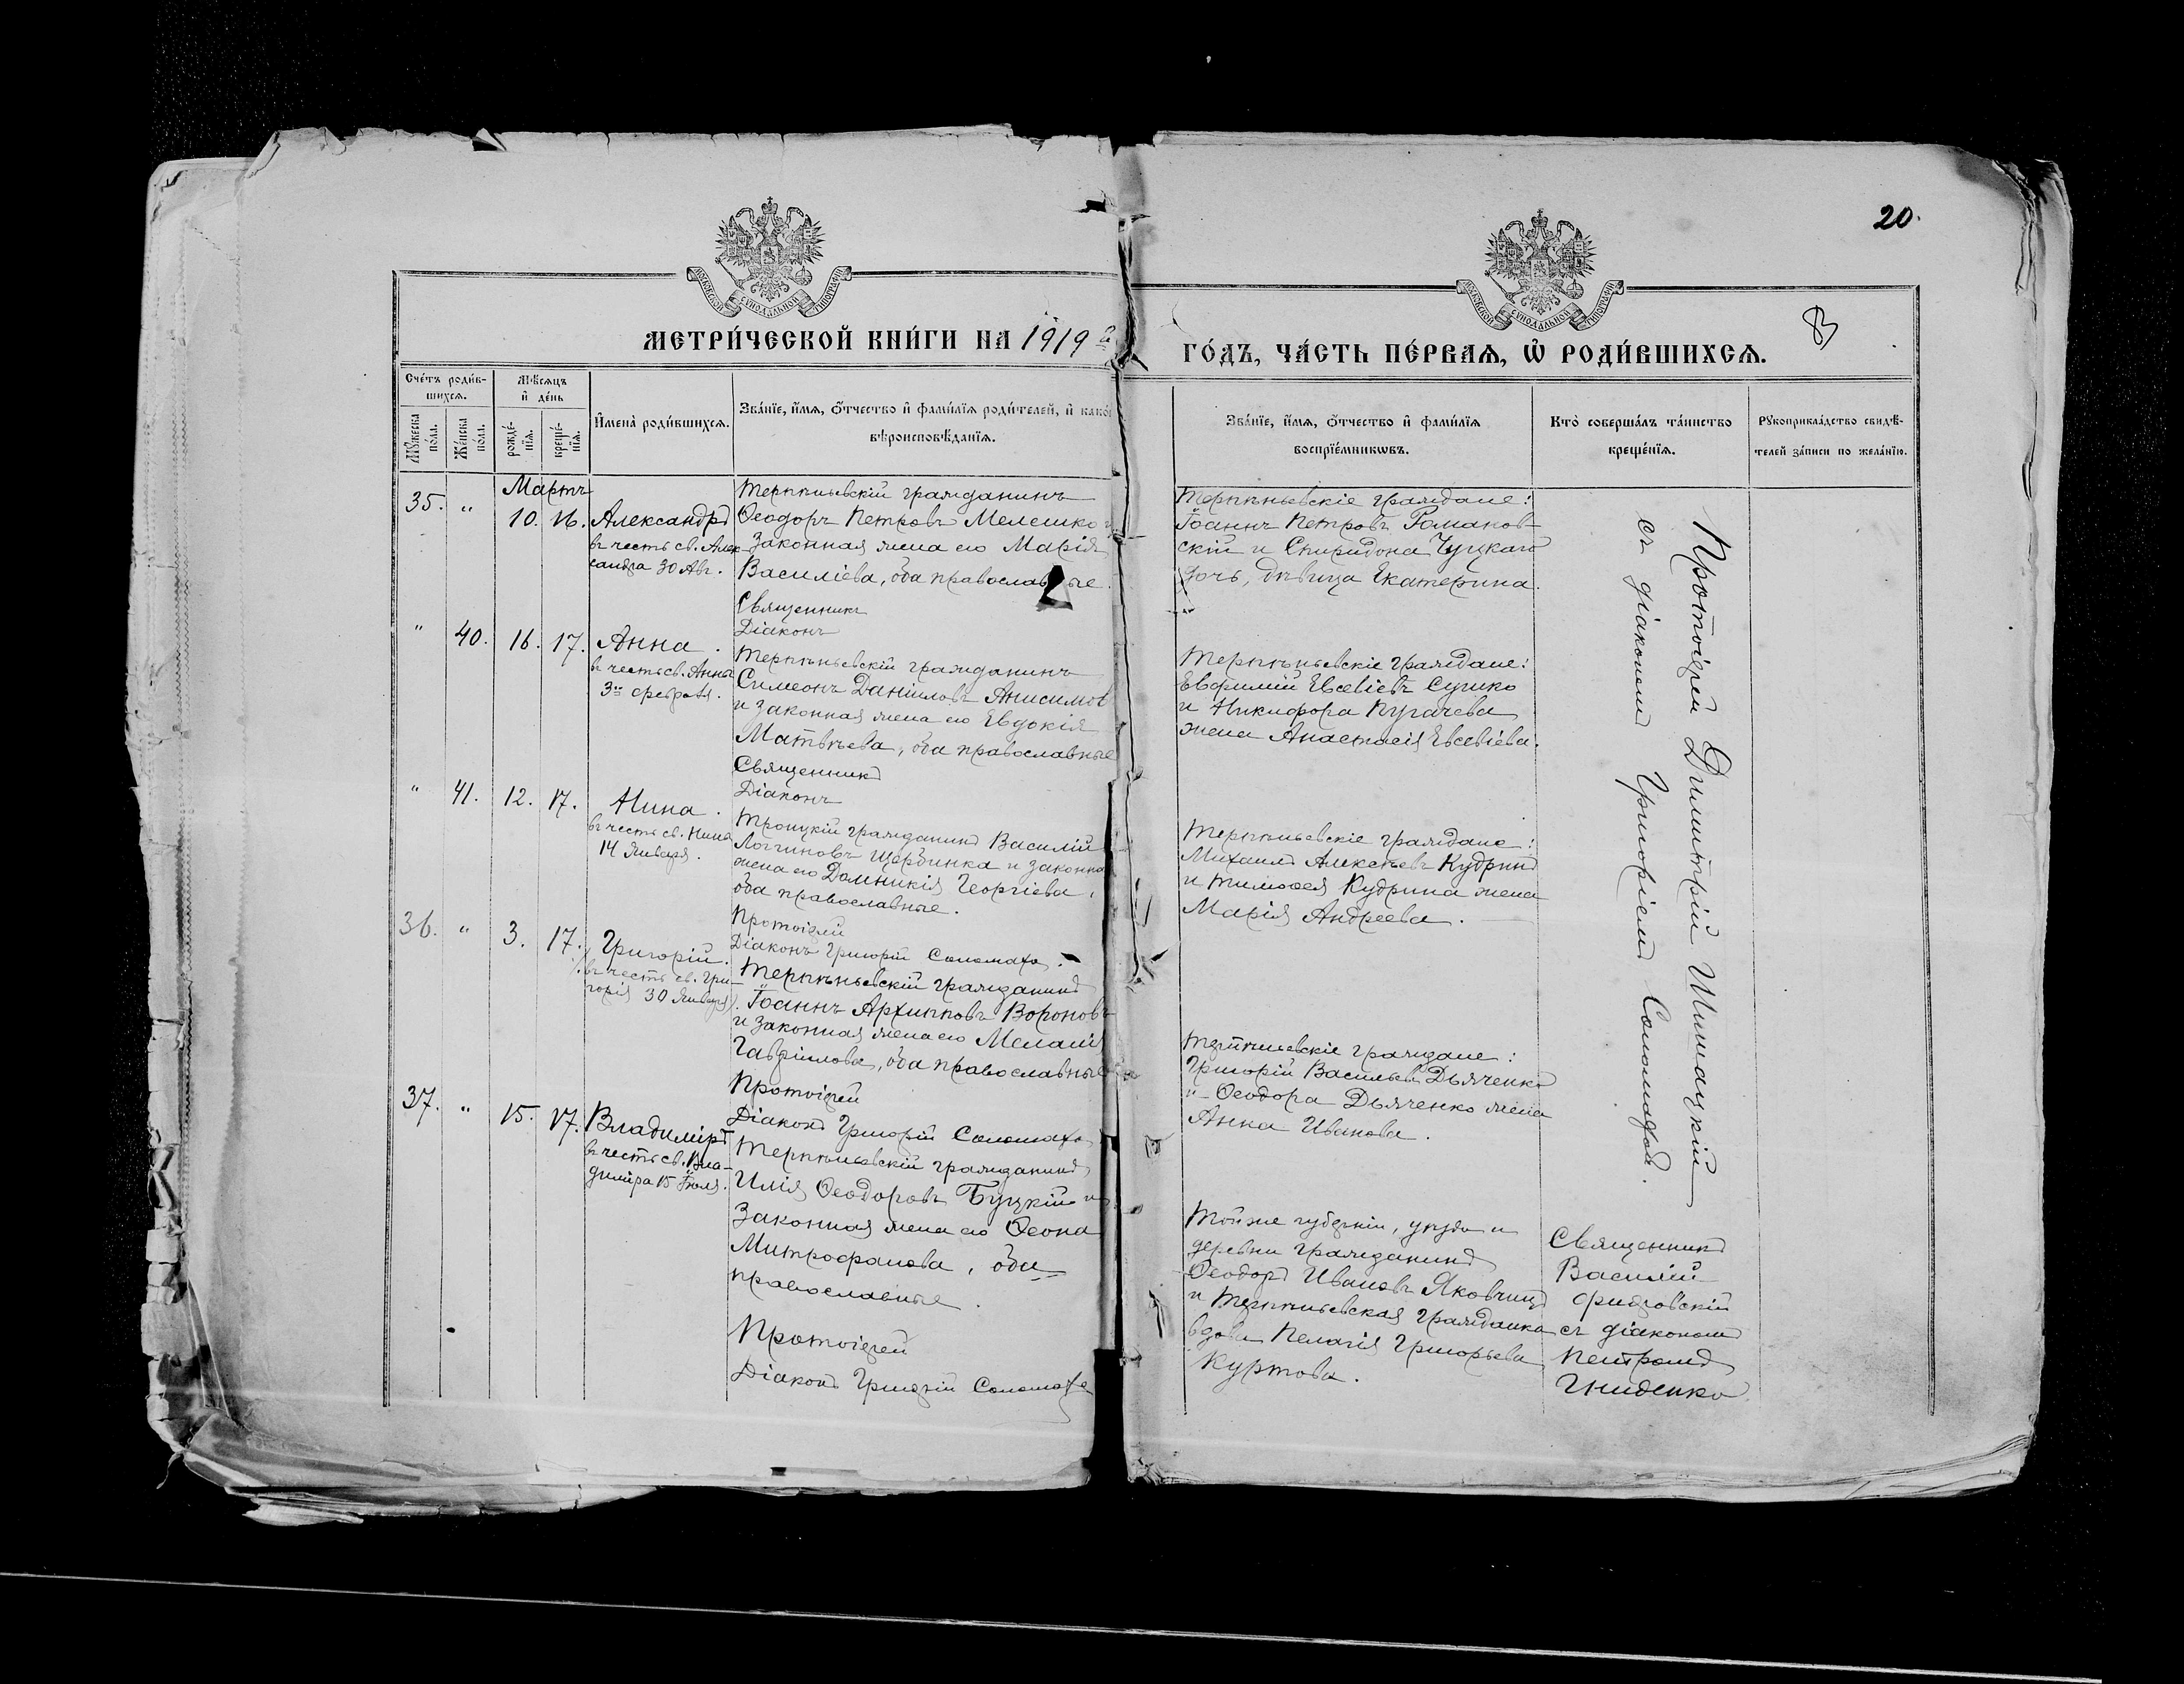 20.
МОСКОВСКОЙ СѴНОДАЛЬНОЙ ТИПОГРАФІИ
МОСКОВСКОЙ СѴНОДАЛЬНОЙ ТИПОГРАФІИ
МЕТРИ́ЧЕСКОЙ КНИ́ГИ НА 1919
ГО́ДЪ, ЧА́СТЬ ПЕ́РВАѦ, Ѽ РОДИ́ВШИХСѦ.
Сче́тъ роди́в-
шихсѧ.
Мꙋ́жеска по́ла.
Же́нска по́ла.
Мѣ́сѧцъ
и҆ де́нь
рожде́-
нїѧ.
креще́-
нїѧ.
И҆мена̀ роди́вшихсѧ.
Зва́нїе, и҆́мѧ, ѻ҆́тчество и҆ фами́лїѧ роди́телей, и҆ како́
вѣроисповѣ́данїѧ.
Зва́нїе, и҆́мѧ, ѻ҆́тчество и҆ фами́лїѧ
воспрїе́мникѡвъ.
Кто̀ соверша́лъ та́инство
креще́нїѧ.
Рꙋкоприкла́дство свидѣ́-
телей за́писи по жела́нїю.
Мартъ
35. " 10. 16. Александръ
въ честь св. Алек-
сандра 30 Авг.
Терпѣньевскій гражданинъ
Ѳеодоръ Петровъ Мелешко и
законная жена его Марія
Василіева, оба православные.
Священникъ
Діаконъ
Терпѣньевскіе граждане:
Іоаннъ Петровъ Романов-
скій и Спиридона Чуцкаго
дочь, дѣвица Екатерина.
" 40. 16. 17. Анна.
въ честь св. Анны
3 февраля.
Терпѣньевскій гражданинъ
Симеонъ Даніиловъ Анисимов
и законная жена его Евдокія
Матвѣева, оба православные
Священникъ
Діаконъ
Терпѣньевскіе граждане:
Евфимій Евсевіевъ Сушко
и Никифора Пугачева
жена Анастасія Евсевіева.
" 41. 12. 17. Нина.
въ честь св. Нины
14 Января.
Троицкій гражданинъ Василій
Логгиновъ Щербинка и законна
жена его Домникія Георгіева,
оба православные.
Протоіерей
Діаконъ Григорій Соломаха.
Терпѣньевскіе граждане:
Михаилъ Алексѣевъ Кудринъ
и Тимоѳея Кудрина жена
Марія Андреева.
36. " 3. 17. Григорій.
въ честь св. Гри-
горія 30 Января.
Терпѣньевскій гражданинъ
Іоаннъ Архипповъ Вороновъ
и законная жена его Меланія
Гавріилова, оба православные
Протоіерей
Діаконъ Григорій Соломаха
Терпѣньевскіе граждане:
Григорій Васильевъ Дьяченко
и Ѳеодора Дьяченко жена
Анна Иванова.
37. " 15. 17. Владиміръ
въ честь св. Вла-
диміра 15 Іюля.
Терпѣньевскій гражданинъ
Илія Ѳеодоровъ Буцкій и
законная жена его Ѳеона
Митрофанова, оба
православные.
Протоіерей
Діаконъ Григорій Соломаха
Той же губерніи, уѣзда и
деревни гражданинъ
Ѳеодоръ Ивановъ Яковчицъ
и Терпѣньевская гражданка
вдова Пелагія Григорьева
Куртова.
Протоіерей Димитрій Шишацкій
съ діакономъ Григоріемъ Соломахой.
Священникъ
Василій
съ діакономъ
Петромъ
Гниденко